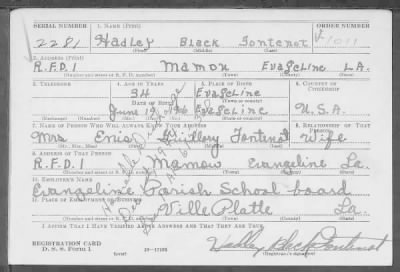 SERIAL NUMBER 1. NAME (Print) ORDER NUMBER
2281 Hadley Black Fontenot V-1011
(First) (Middle) (Last)
2. ADDRESS (Print)
R.F.D.1 Mamou Evageline LA.
(Number and street or R. F. D. number) (Town) (County) (State)
3. TELEPHONE 4. AGE IN YEARS 5. PLACE OF BIRTH 6. COUNTRY OF CITIZENSHIP
34 Evageline
DATE OF BIRTH (Town or county)
June 19, U.S.A.
7. NAME OF PERSON WHO WILL ALWAYS KNOW YOUR ADDRESS 8. RELATIONSHIP OF THAT PERSON
Mrs. Guillory Fontenot Wife
9. ADDRESS OF THAT PERSON
R.F.D.1 Mamou Evangeline La
(Number and street or R. F. D. number) (Town) (County) (State)
10. EMPLOYER'S NAME
Evangeline Parish School board
11. PLACE OF EMPLOYMENT OR BUSINESS
Ville Platte La.
I AFFIRM THAT I HAVE VERIFIED ABOVE ANSWERS AND THAT THEY ARE TRUE.
REGISTRATION CARD
D. S. S. Form 1 Hadley Black Fontenot
(Registrant's signature)